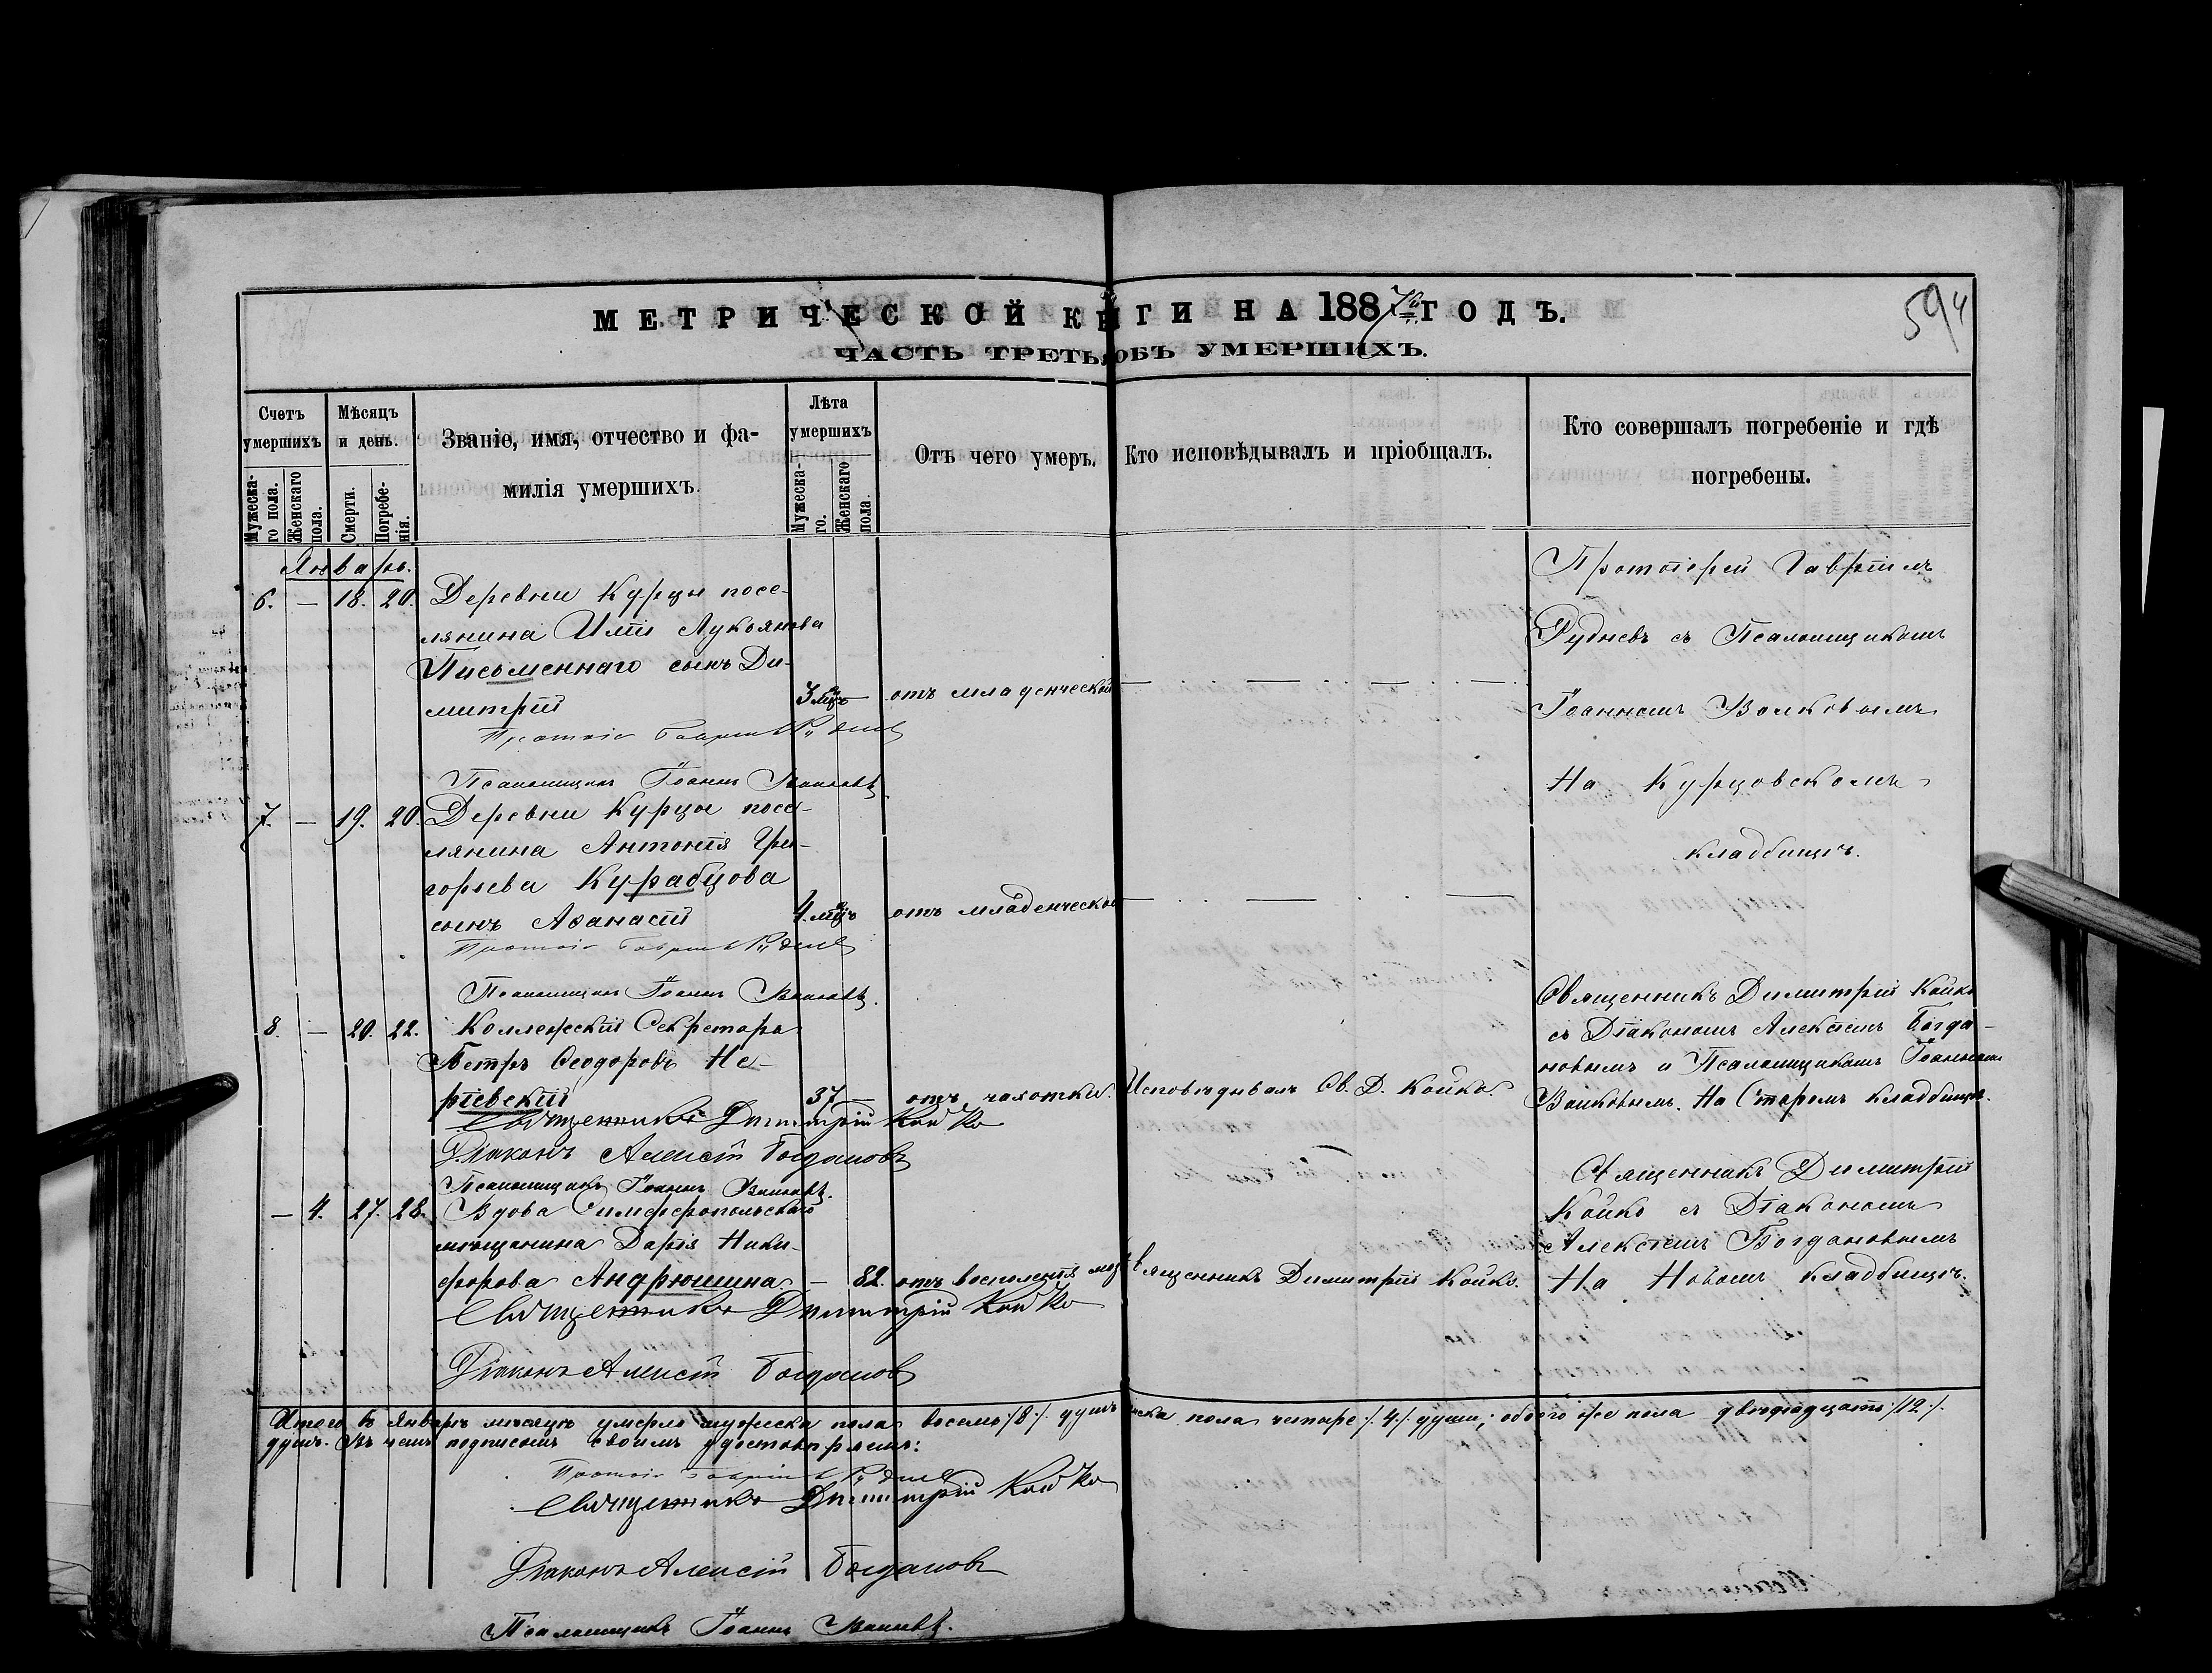 МЕТРИЧЕСКОЙ КНИГИ НА 1887й ГОДЪ.
594
ЧАСТЬ ТРЕТЬЯ ОБЪ УМЕРШИХЪ.
Счетъ умершихъ
Мужеска-го пола.
Женскаго пола.
Мѣсяцъ и день.
Смерти.
Погребе-нія.
Званіе, имя, отчество и фа-
милія умершихъ.
Лѣта умершихъ
Мужеска-го.
Женскаго пола.
Отъ чего умеръ.
Кто исповѣдывалъ и пріобщалъ.
Кто совершалъ погребеніе и гдѣ
погребены.
Январь.
6. — 18. 20. Деревни Курцы посе-
лянина Иліи Лукьянова
Письменнаго сынъ Ди-
митрій 3 мѣс — отъ младенческой
Псаломщикъ Іоаннъ
Протоіерей Гавріилъ
Рудневъ съ Псаломщикомъ
Іоанномъ
На Курцовскомъ
кладбищѣ.
7. — 19. 20. Деревни Курцы посе-
лянина Антонія Гри-
горьева Курабцова
сынъ Аѳанасій 4 мѣс отъ младенческой
Псаломщикъ Іоаннъ
8. — 20. 22. Коллежскій Секретарь
Петръ Ѳеодоровъ Не-
ріевскій 37 — отъ чахотки. Исповѣдывалъ Св. Д. Койко.
Священникъ Димитрій Койко
Діаконъ Алексій Богдановъ
Псаломщикъ Іоаннъ
Священникъ Димитрій Койко
съ Діакономъ Алексіемъ Богда-
новымъ и Псаломщикомъ Іоанномъ
На Старомъ кладбищѣ.
— 4. 27. 28. Вдова Симферопольскаго
мѣщанина Дарія Ники-
форова Андрюшина — 82. отъ воспаленія Священникъ Димитрій Койко.
Священникъ Димитрій Койко
Діаконъ Алексій Богдановъ
Священникъ Димитрій
Койко съ Діакономъ
Алексіемъ Богдановымъ
На Новомъ кладбищѣ.
Итого въ Январѣ мѣсяцѣ умерло мужеска пола восемь /8/ душъ женска пола четыре /4/ души; обоего же пола двѣнадцать /12/
душъ. Въ чемъ подписомъ своимъ удостовѣряемъ:
Священникъ Димитрій Койко
Діаконъ Алексій Богдановъ
Псаломщикъ Іоаннъ